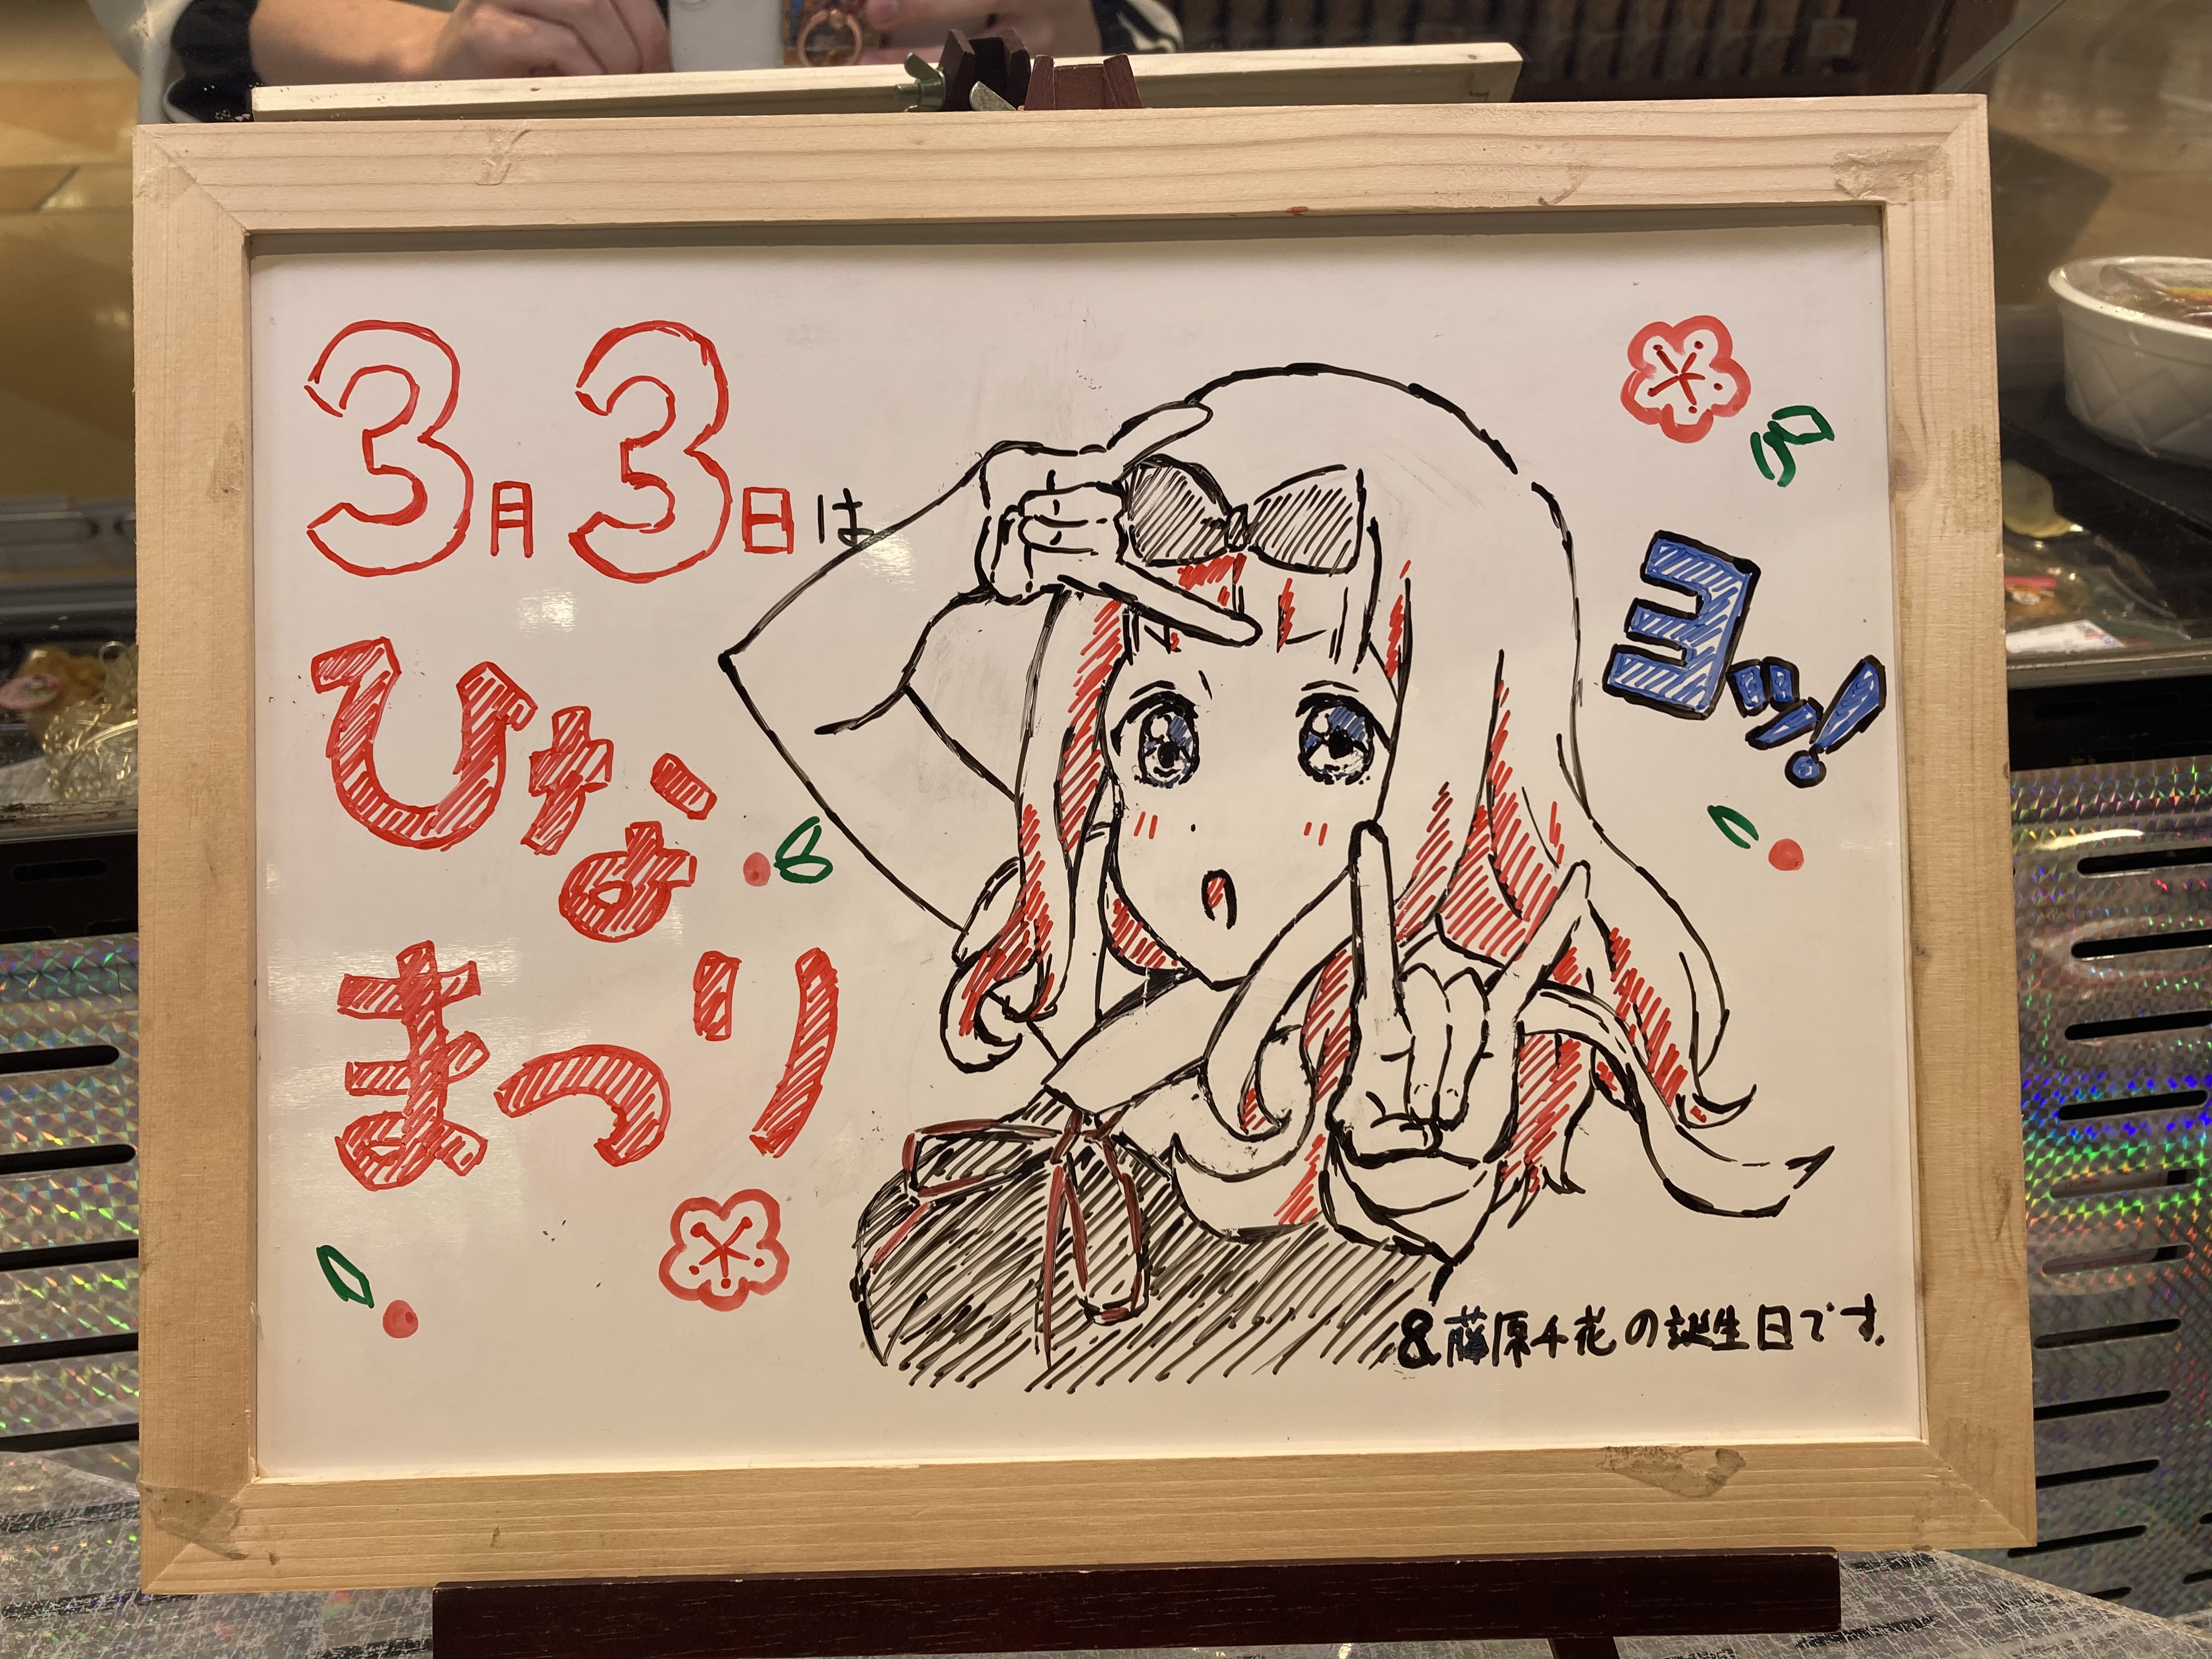 3月3日は
ひな
まつり
ヨッ!
&藤原千花の誕生日です。